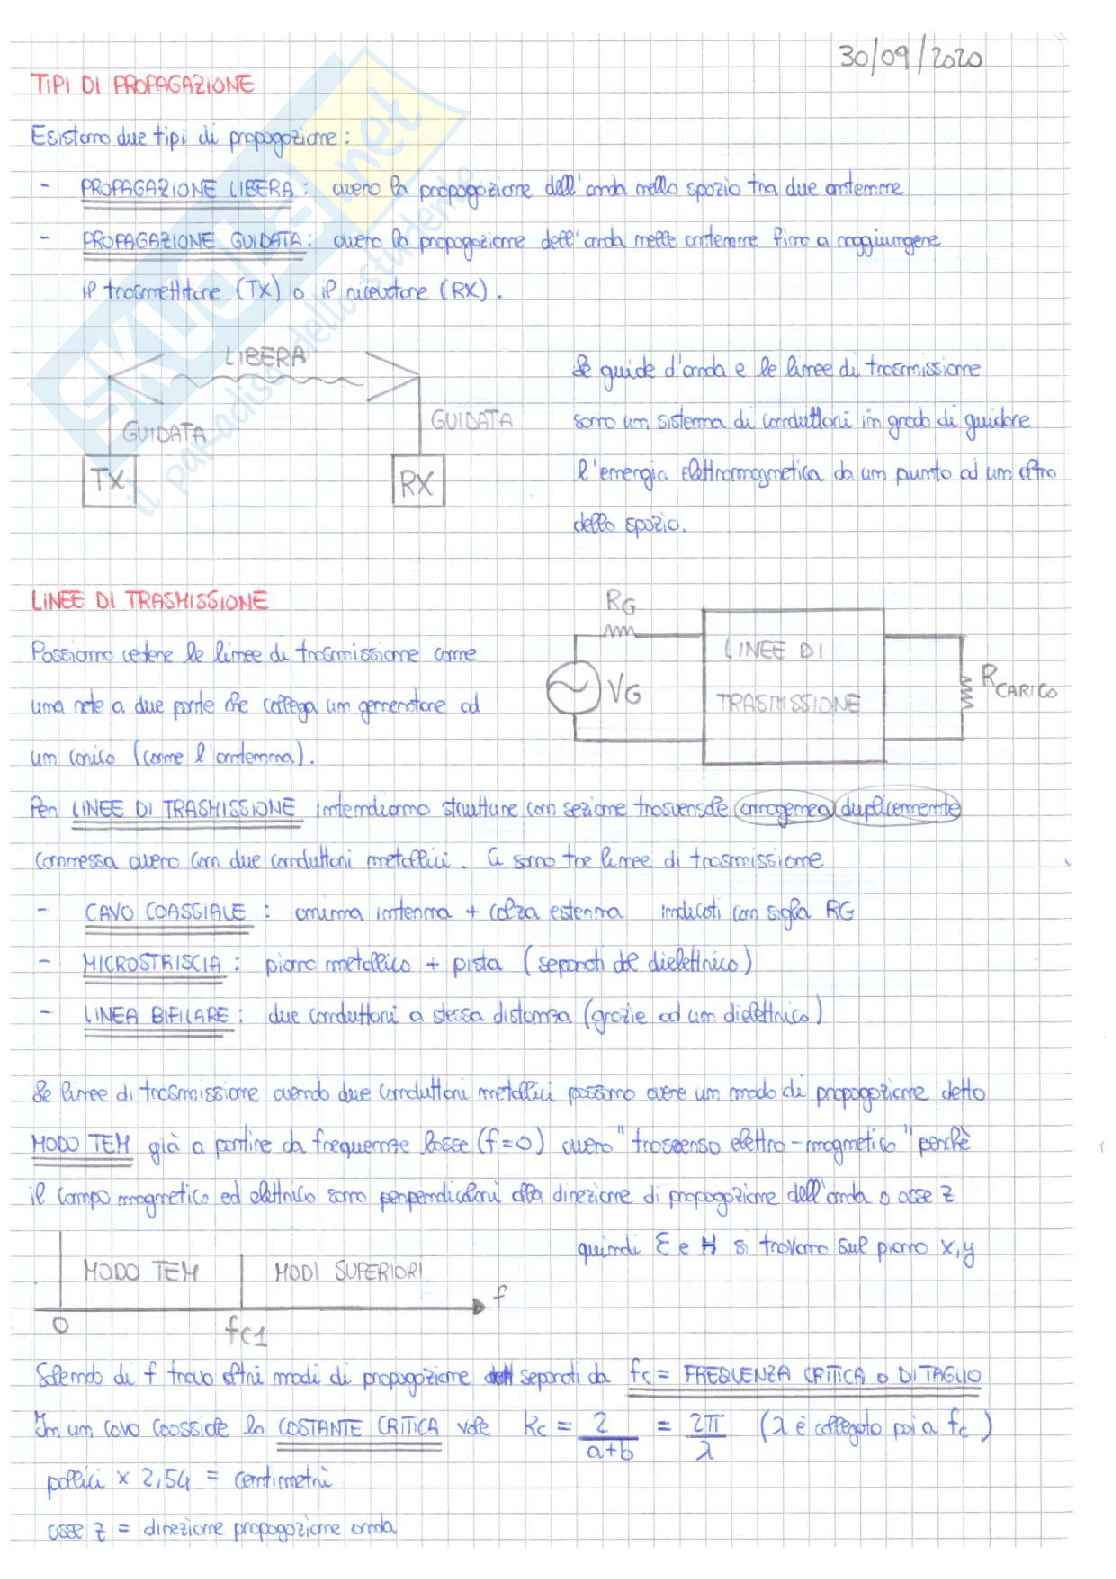 30/09/2020
TIPI DI PROPAGAZIONE
Esistono due tipi di propagazione:
- PROPAGAZIONE LIBERA: ovvero la propagazione dell'onda nello spazio tra due antenne
- PROPAGAZIONE GUIDATA: ovvero la propagazione dell'onda nelle antenne fino a raggiungere
il trasmettitore (TX) o il ricevitore (RX).
LIBERA
GUIDATA
GUIDATA
TX
RX
Le guide d'onda e le linee di trasmissione
sono un sistema di conduttori in grado di guidare
l'energia elettromagnetica da un punto ad un altro
dello spazio.
LINEE DI TRASMISSIONE
Possiamo vedere le linee di trasmissione come
una rete a due porte che collega un generatore ad
un carico (come l'antenna).
RG
VG
LINEE DI
TRASMISSIONE
RCARICO
Per LINEE DI TRASMISSIONE intendiamo strutture con sezione trasversale omogenea duplicemente
connessa ovvero con due conduttori metallici. Ci sono tre linee di trasmissione
- CAVO COASSIALE: anima interna + calza esterna indicati con sigla RG
- MICROSTRISCIA: piano metallico + pista (separati dal dielettrico)
- LINEA BIFILARE: due conduttori a stessa distanza (grazie ad un dielettrico)
Le linee di trasmissione avendo due conduttori metallici possono avere un modo di propagazione detto
MODO TEM già a partire da frequenze basse (f=0) ovvero "trasverso elettro-magnetico" perché
il campo magnetico ed elettrico sono perpendicolari alla direzione di propagazione dell'onda o asse z
quindi E e H si trovano sul piano x,y
MODO TEM
MODI SUPERIORI
f
0
fc1
Salendo di f trovo altri modi di propagazione separati da fc = FREQUENZA CRITICA o DI TAGLIO
In un cavo coassiale la COSTANTE CRITICA vale Kc = 2/(a+b) = 2π/λ (λ è collegato poi a fc)
pollici x 2,54 = centimetri
asse z = direzione propagazione onda
SKUOLA.net
il paradiso dello studente